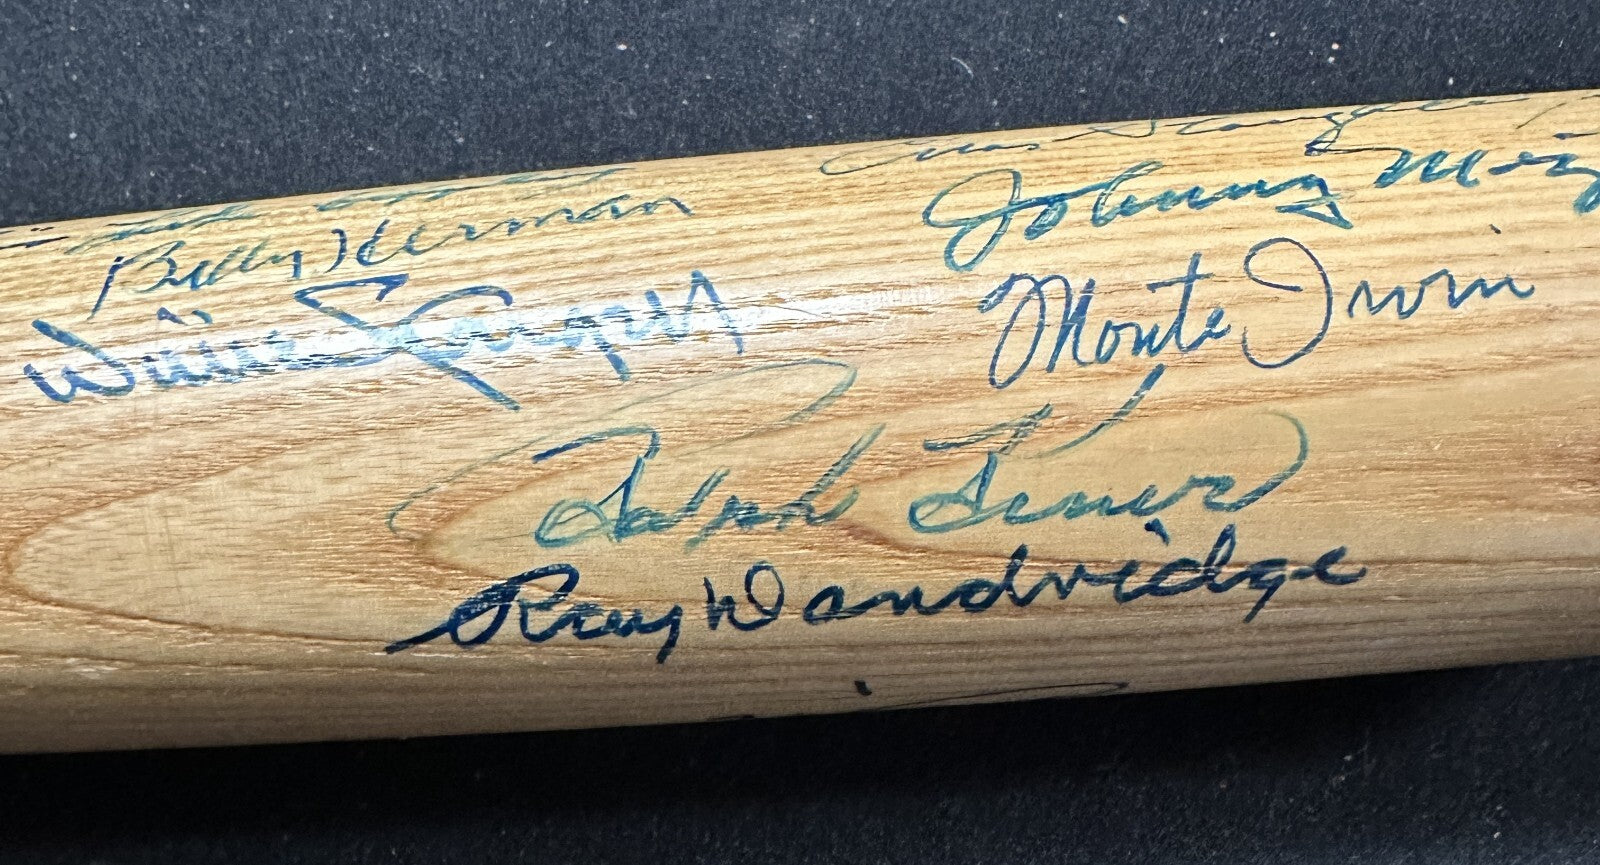 Enos Slaughter
Billy Herman
Johnny Miz
Willie Stargell
Monte Irvin
Ralph Kiner
Ray Dandridge